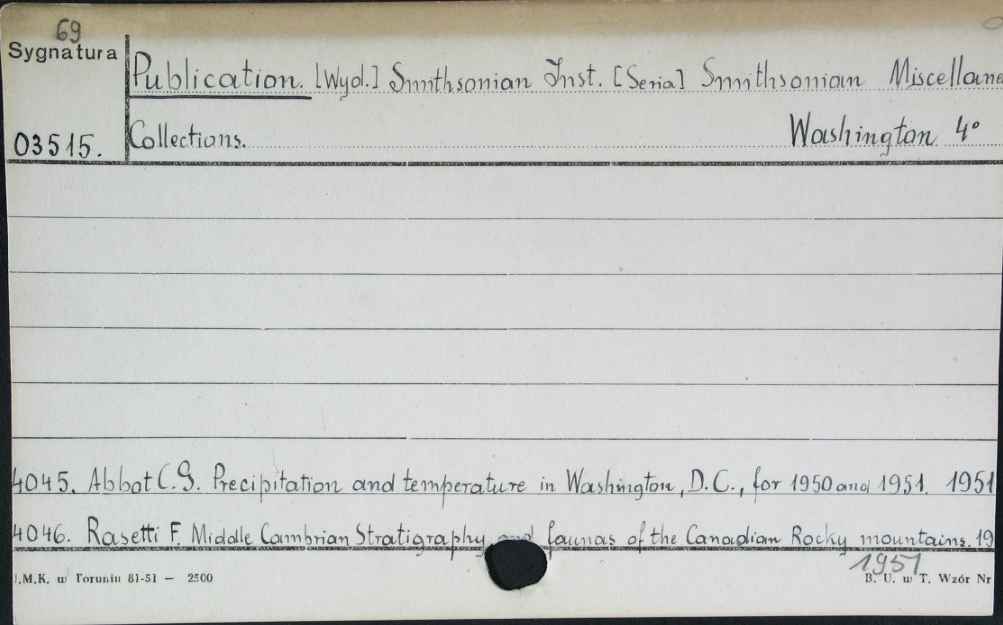 69
Sygnatura
Publication. [Wyd.] Smithsonian Inst. [Seria] Smithsonian Miscellane
03515. Collections. Washington 4°
4045. Abbot C.G. Precipitation and temperature in Washington, D.C., for 1950 and 1951. 1951
4046. Rasetti F. Middle Cambrian Stratigraphy and faunas of the Canadian Rocky mountains. 19
1951
.M.K. w Toruniu 81-51 — 2500 B. U. w T. Wzór Nr